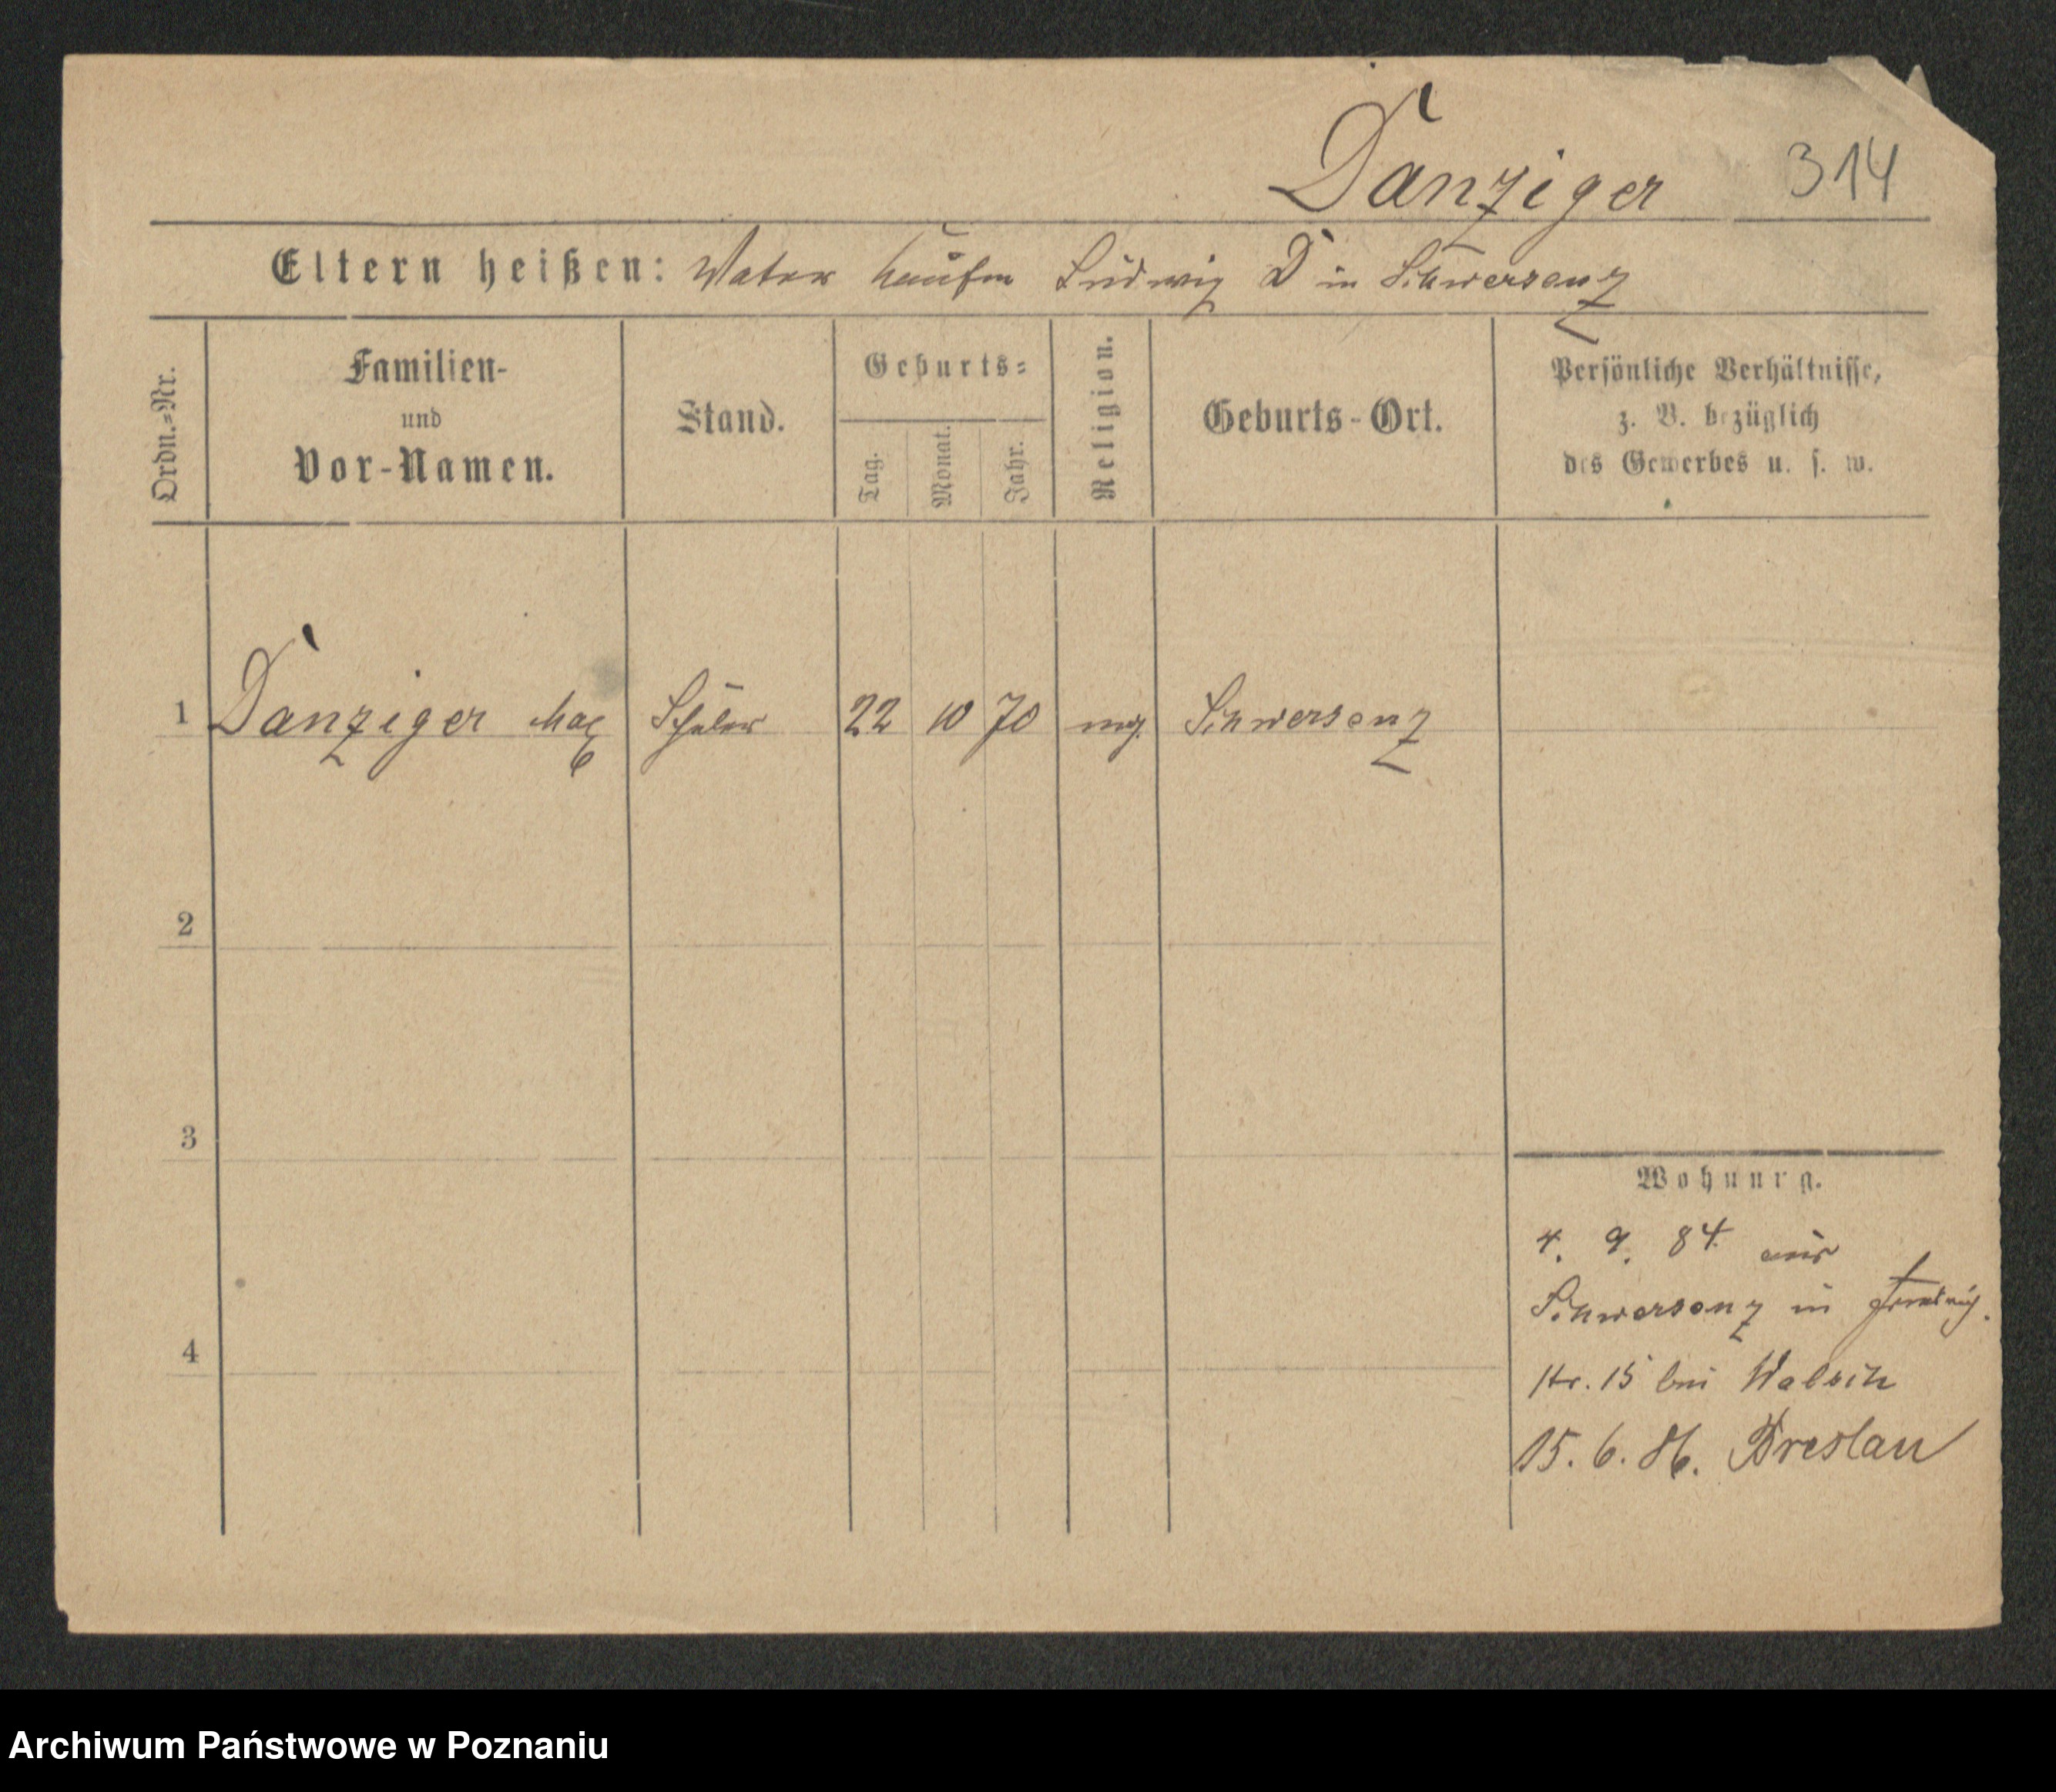 Danziger 314
Eltern heißen: Vater Kaufm Ludwig D in Schwersenz
Ordn.=Nr.
Familien-
und
Vor-Namen.
Stand.
Geburts=
Tag.
Monat.
Jahr.
Religion.
Geburts-Ort.
Persönliche Verhältnisse,
z. B. bezüglich
des Gewerbes u. s. w.
1 Danziger Max Schüler 22 10 70 Schwersenz
2
3
4
Wohnung.
4. 9. 84. aus
Schwersenz in
str. 15 bei
15. 6. 86. Breslau
Archiwum Państwowe w Poznaniu